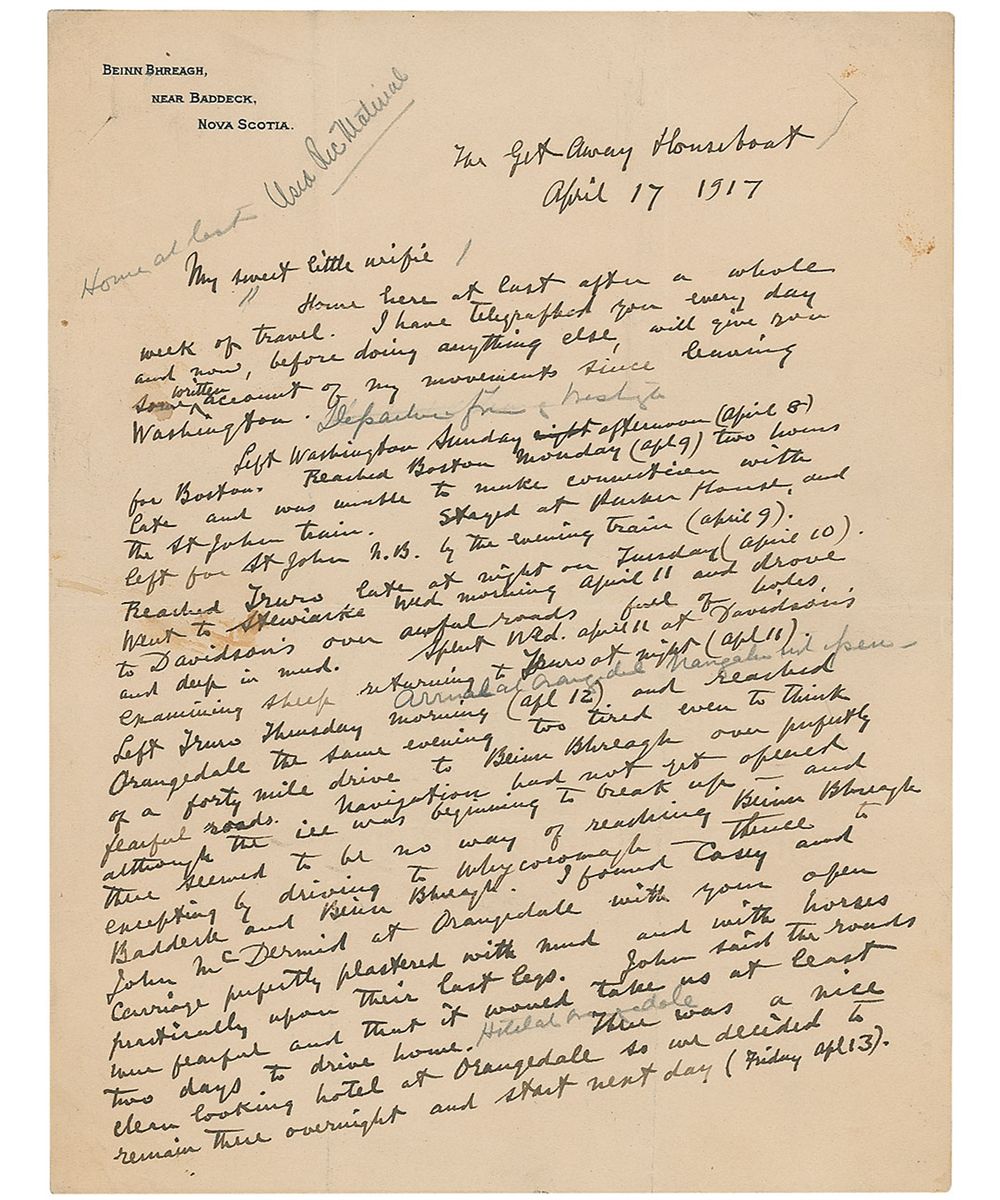 BEINN BHREAGH,
NEAR BADDECK,
NOVA SCOTIA.
Used Rec Material
Home at last
The Get Away Houseboat
April 17 1917
My sweet little wifie
Home here at last after a whole
week of travel. I have telegraphed you every day
and now, before doing anything else, will give you
some written account of my movements since leaving
Washington. Departure from
Left Washington Sunday night afternoon (April 8)
for Boston. Reached Boston Monday (apl 9) two hours
late and was unable to make connection with
the St John train. Stayed at Parker House, and
left for St John N.B. by the evening train (april 9).
Reached Truro late at night on Tuesday (april 10).
Went to Stewiacke Wed morning April 11 and drove
to Davidson's over awful roads full of holes
and deep in mud. Spent Wed. april 11 at Davidson's
examining sheep returning to Truro at night (apl 11).
Arrival at Orangedale Navigation not open
Left Truro Thursday morning (apl 12) and reached
Orangedale the same evening too tired even to think
of a forty mile drive to Beinn Bhreagh over perfectly
fearful roads. Navigation had not yet opened
although the ice was beginning to break up — and
there seemed to be no way of reaching Beinn Bhreagh
excepting by driving to Whycocomagh — thence to
Baddeck and Beinn Bhreagh. I found Casey and
John McDermid at Orangedale with your open
carriage perfectly plastered with mud and with horses
practically upon their last legs. John said the roads
were fearful and that it would take us at least
two days to drive home. Hotel at Orangedale There was a nice
clean looking hotel at Orangedale so we decided to
remain there overnight and start next day (Friday apl 13).